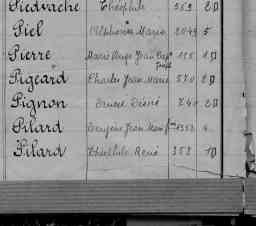 Piedvache Théophile 353 2D
Piel Alphonse Marie 2049 5
Pierre Marie Ange Jean Bapt 115 1D
Pigeard Charles Jean Marie 570 2D
Pignon Désiré 740 2D
Pilard Jean 1353 4
Pilard Théophile René 358 1D